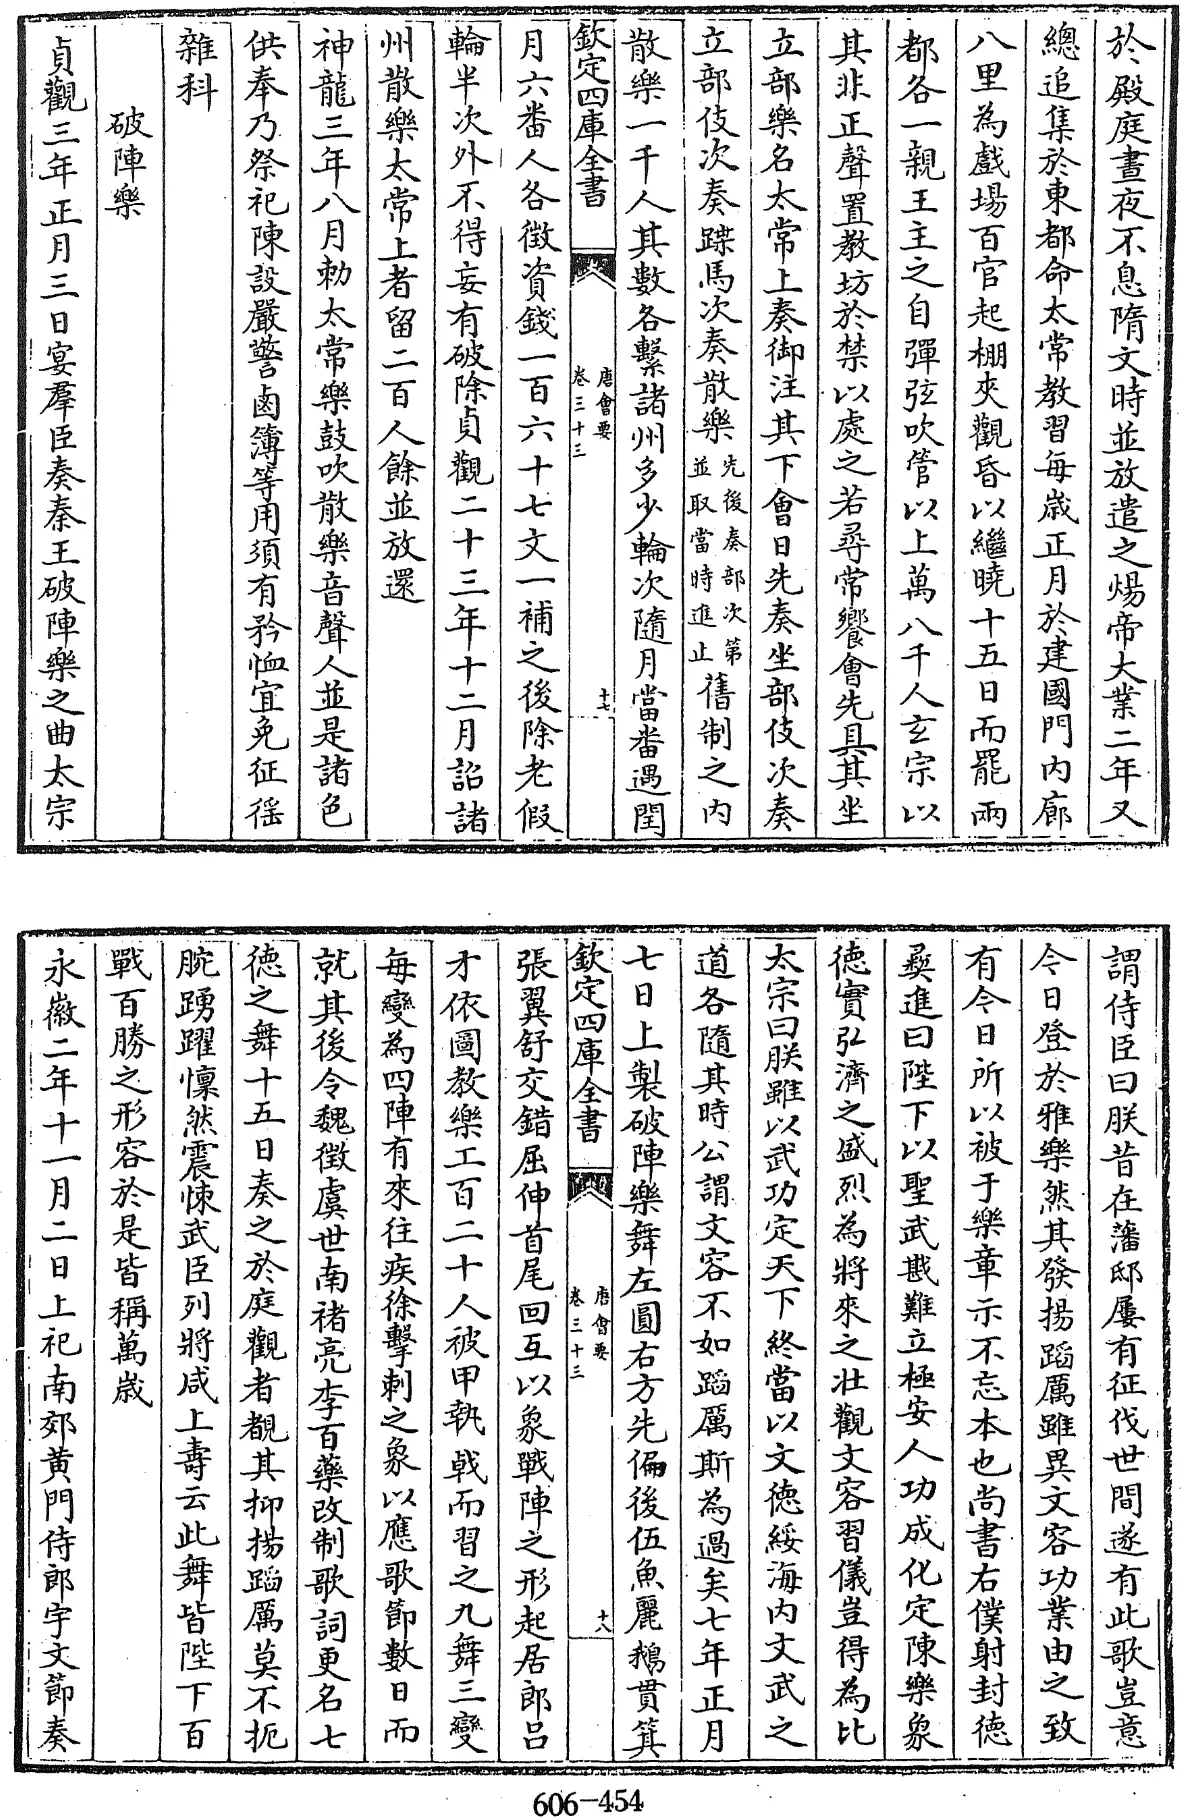 於殿庭晝夜不息隋文時並放遣之煬帝大業二年又
總追集於東都命太常教習每歲正月於建國門內廊
八里為戲場百官起棚夾觀昏以繼曉十五日而罷兩
都各一親王主之自彈弦吹管以上萬八千人玄宗以
其非正聲置教坊於禁以處之若尋常饗會先具其坐
立部樂名太常上奏御注其下會日先奏坐部伎次奏
立部伎次奏蹀馬次奏散樂先後奏部次第並取當時進止舊制之內
散樂一千人其數各繫諸州多少輪次隨月當番遇閏
欽定四庫全書
唐會要
卷三十三
十七
月六番人各徵資錢一百六十七文一補之後除老假
輪半次外不得妄有破除貞觀二十三年十二月詔諸
州散樂太常上者留二百人餘並放還
神龍三年八月勅太常樂鼓吹散樂音聲人並是諸色
供奉乃祭祀陳設嚴警鹵簿等用須有矜恤宜免征徭
雜科
破陣樂
貞觀三年正月三日宴羣臣奏秦王破陣樂之曲太宗
謂侍臣曰朕昔在藩邸屢有征伐世間遂有此歌豈意
今日登於雅樂然其發揚蹈厲雖異文容功業由之致
有今日所以被于樂章示不忘本也尚書右僕射封德
彝進曰陛下以聖武戡難立極安人功成化定陳樂象
德實弘濟之盛烈為將來之壯觀文容習儀豈得為比
太宗曰朕雖以武功定天下終當以文德綏海內文武之
道各隨其時公謂文容不如蹈厲斯為過矣七年正月
七日上製破陣樂舞左圓右方先偏後伍魚麗鵝貫箕
欽定四庫全書
唐會要
卷三十三
十八
張翼舒交錯屈伸首尾回互以象戰陣之形起居郎呂
才依圖教樂工百二十人被甲執戟而習之凡舞三變
每變為四陣有來往疾徐擊刺之象以應歌節數日而
就其後令魏徵虞世南褚亮李百藥改制歌詞更名七
德之舞十五日奏之於庭觀者覩其抑揚蹈厲莫不扼
腕踴躍懍然震悚武臣列將咸上壽云此舞皆陛下百
戰百勝之形容於是皆稱萬歲
永徽二年十一月二日上祀南郊黃門侍郎宇文節奏
606-454